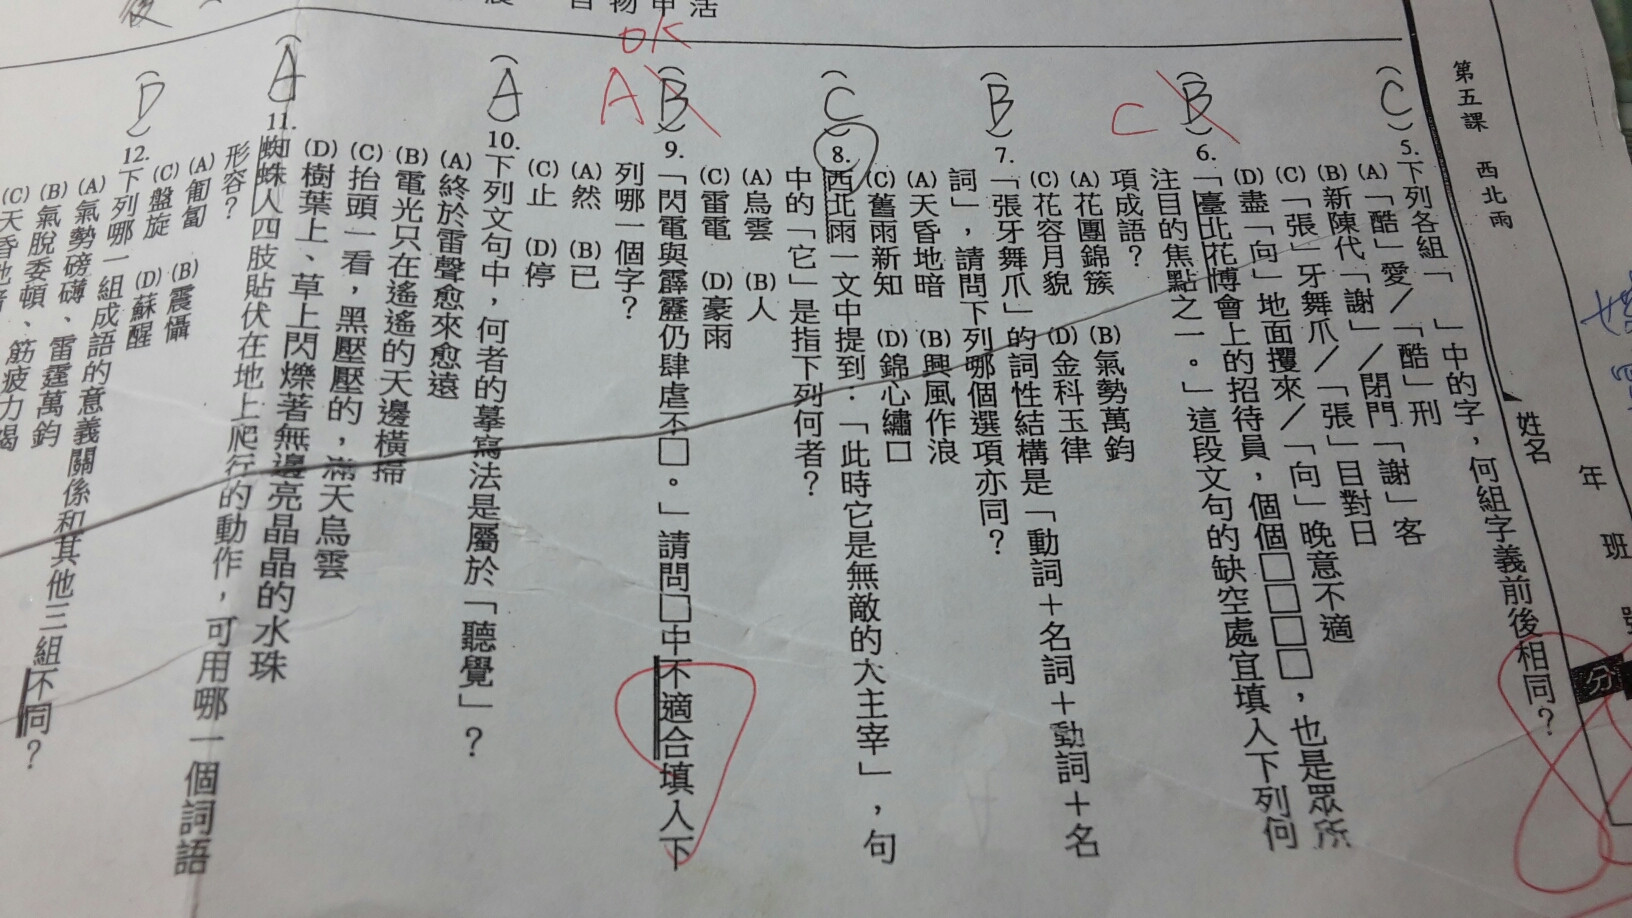 活
物
年 班
姓名
分
第五課 西北雨
(C)5.下列各組「 」中的字，何組字義前後相同？
(A)「酷」愛／「酷」刑
(B)新陳代「謝」／閉門「謝」客
(C)「張」牙舞爪／「張」目對日
(D)盡「向」地面攫來／「向」晚意不適
C
(B)6.「臺北花博會上的招待員，個個□□□□，也是眾所
注目的焦點之一。」這段文句的缺空處宜填入下列何
項成語？
(A)花團錦簇 (B)氣勢萬鈞
(C)花容月貌 (D)金科玉律
(B)7.「張牙舞爪」的詞性結構是「動詞＋名詞＋動詞＋名
詞」，請問下列哪個選項亦同？
(A)天昏地暗 (B)興風作浪
(C)舊雨新知 (D)錦心繡口
(C)8.西北雨一文中提到：「此時它是無敵的大主宰」，句
中的「它」是指下列何者？
(A)烏雲 (B)人
(C)雷電 (D)豪雨
OK
A
(B)9.「閃電與霹靂仍肆虐不□。」請問□中不適合填入下
列哪一個字？
(A)然 (B)已
(C)止 (D)停
(A)10.下列文句中，何者的摹寫法是屬於「聽覺」？
(A)終於雷聲愈來愈遠
(B)電光只在遙遙的天邊橫掃
(C)抬頭一看，黑壓壓的，滿天烏雲
(D)樹葉上、草上閃爍著無邊亮晶晶的水珠
(A)11.蜘蛛人四肢貼伏在地上爬行的動作，可用哪一個詞語
形容？
(A)匍匐 (B)震懾
(C)盤旋 (D)蘇醒
(D)12.下列哪一組成語的意義關係和其他三組不同？
(A)氣勢磅礴、雷霆萬鈞
(B)氣脫委頓、筋疲力竭
(C)天昏地